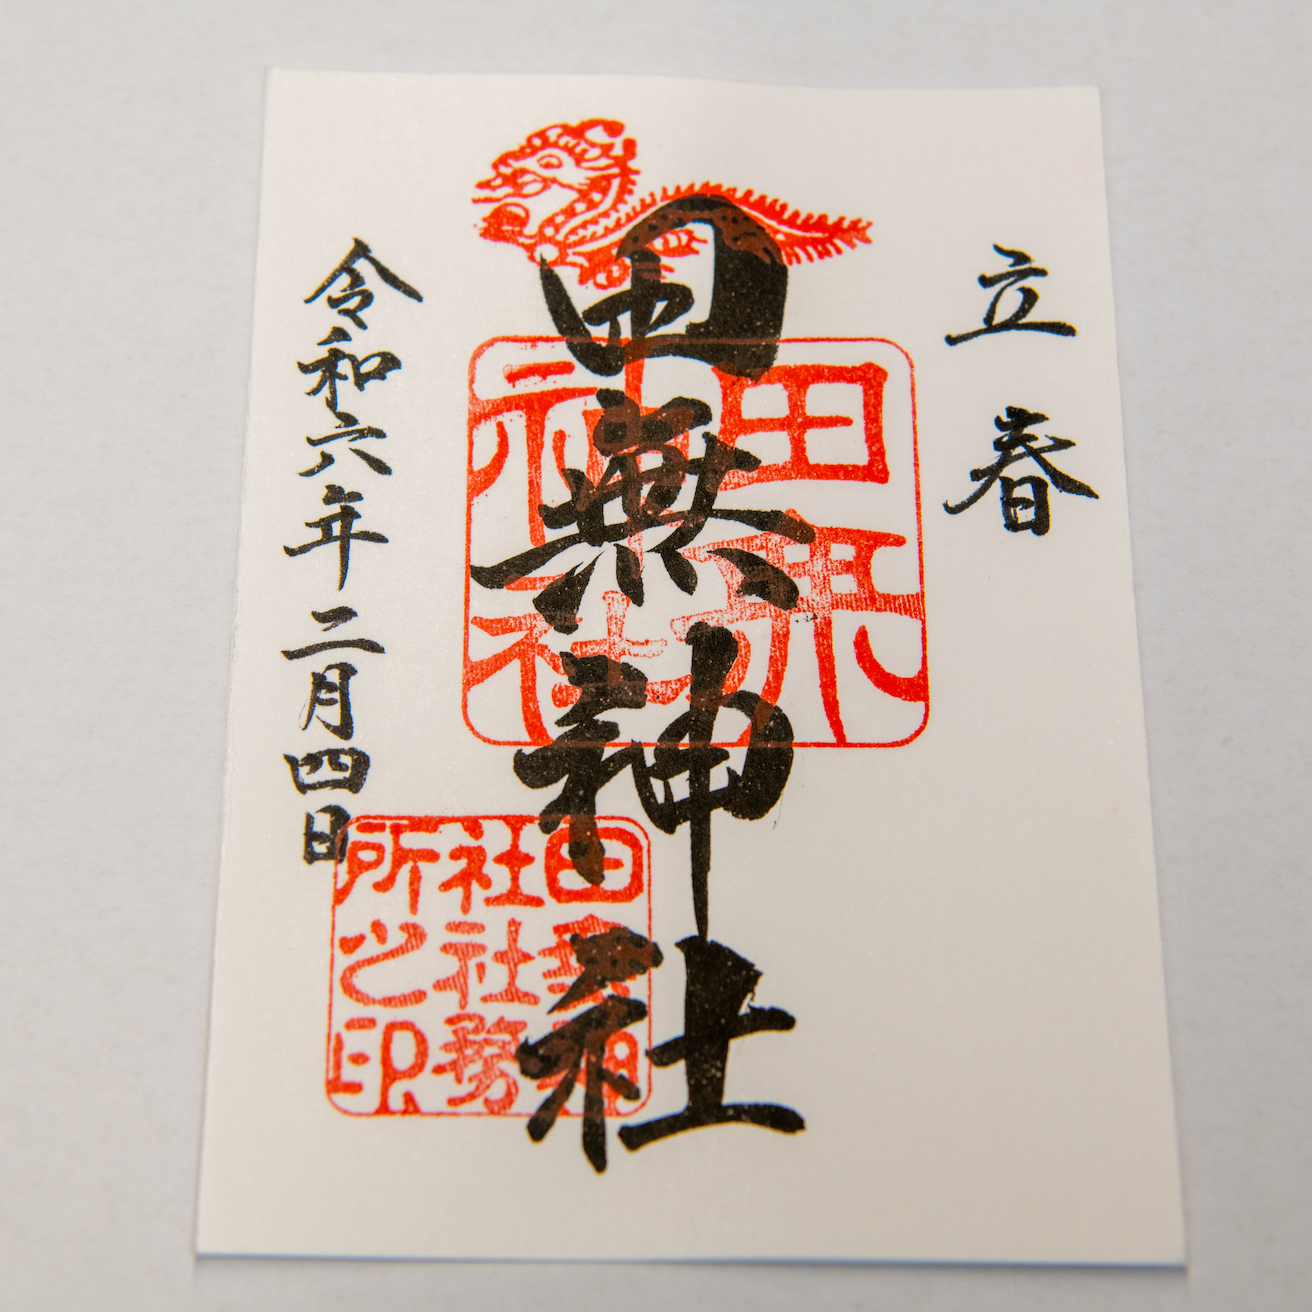 立春
田無神社
令和六年二月四日
田無
神社
田無神
社社務
所之印